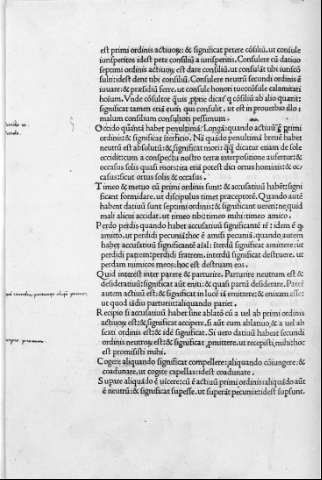 est primi ordinis actiuoꝝ: & significat petere cõsiliũ. ut consule
iurisperitos: idest pete consiliũ a iurisperitis. Consulere cũ datiuo
septimi ordinis actiuoꝝ est dare consiliũ. ut consulãt tibi iuriscõ
sulti: idest dent tibi consiliũ. Consulere neutrũ secundi ordinis é
iuuare: & præsidiũ ferre. ut consule honori tuo: cõsule calamitati
hoium. Vnde cõsultor quis proprie dicat q cõsiliũ ab alio quærit:
significat tamen etiã eum qui consulit. ut est in prouerbio illo:
malum consilium consultori pessimum.
Occido quãntũ habet penultimã longã: quando actiuũ primi
ordinis: & significat iterficio. Nã quãdo penultimã breuẽ habet
neutrũ est absolutũ: & significat mori: dicatur etiam de sole
occidit: cum a conspectu nostro terræ interpositione aufertur: &
occasus solis quasi mors: ita etiã potest dici ortus hominis: & oc
casus: sicut ortus solis & occasus.
Timeo & metuo cũ primi ordinis sunt: & accusatiuũ habẽt: signi
ficant formidare. ut discipulus timet præceptorẽ. Quando autẽ
habent datiuũ sunt septimi ordinis: & significant uereri: ne quid
mali alicui accidat. ut timeo tibi: timeo mihi: timeo amico.
Perdo perdis quando habet accusatiuũ significantẽ
amitto. ut perdidi pecuniã: hoc ẽ amisi pecuniã. quando autem
habet accusatiuũ significantẽ aĩal: iterdũ significat amittere: ut
perdidi patrem: perdidi fratrem. interdũ significat destruere. ut
perdam inimicos meos: hoc est destruam eos.
Quid interest inter parere & parturire. Parturire neutrum est &
desideratiuũ: significat aũt eniti: & quasi partũ desiderare. Parere
autem actiuũ est: & significat in lucẽ emittere: & enixam esse:
ut quod uidis parturit: aliquando pariet.
Recipio si accusatiuũ habet sine ablatõ cũ a uel ab primi ordinis
actiuoꝝ est: & significat accipere. si aũt cum ablatiuo, & a uel ab
sexti ordinis est: & idẽ significat. Si uero datiuũ habeat secundi
ordinis neutroꝝ est: & significat promittere. ut recepisti, mihi: hoc
est promisisti mihi.
Cogere aliquando significat compellere: aliquando cõiungere: &
coadunare. ut cogite capellas: idest coadunate.
Supare aliquãdo ẽ uicere: cũ ẽ actiuũ primi ordinis: aliquãdo aũt
ẽ neutrũ: & significat supesse. ut superãt pecuniæ: idest supsunt.